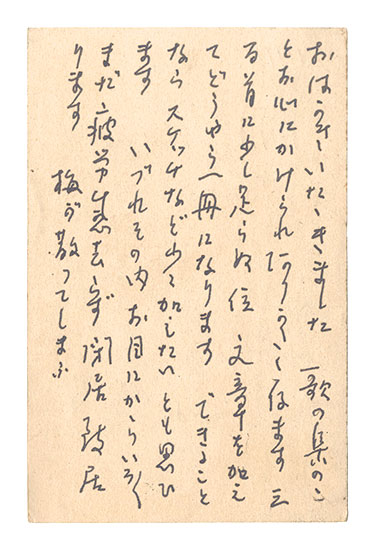 おはがきいたゞきました 歌の集のこ
とお心にかけられありがたく存ます 三
る首に少し足らぬ位 文章を加え
てどうやら一冊になります できること
ならスケッチなど少々加えたいとも思ひ
ます いづれその内お目にかゝりいろ〱
まだ疲労去らず閉居
ります 梅が散ってしまふ